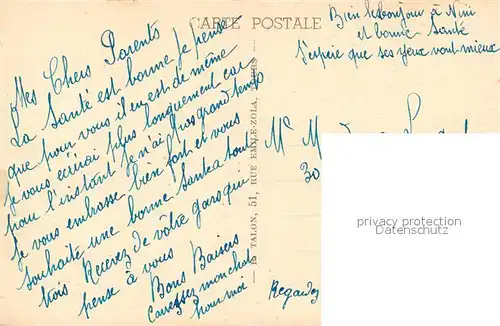 CARTE POSTALE
Bien le bonjour à Nini
et bonne Santé
J'espère que ses yeux vont mieux
Mes Chers Parents
La Santé est bonne je pense
que pour vous il en est de même
je vous écrirai plus longuement car
pour l'instant je n'ai pas grand temps
Je vous embrasse bien fort et vous
souhaite une bonne santée a tous
trois Recevez de vôtre gars qui
pense à vous
Bons Baisers
Caressez mon chat
pour moi
TALON, 51, RUE EMILE-ZOLA,
Mr M
30
Regardez
privacy protection
www.ansichtskartenversand.com